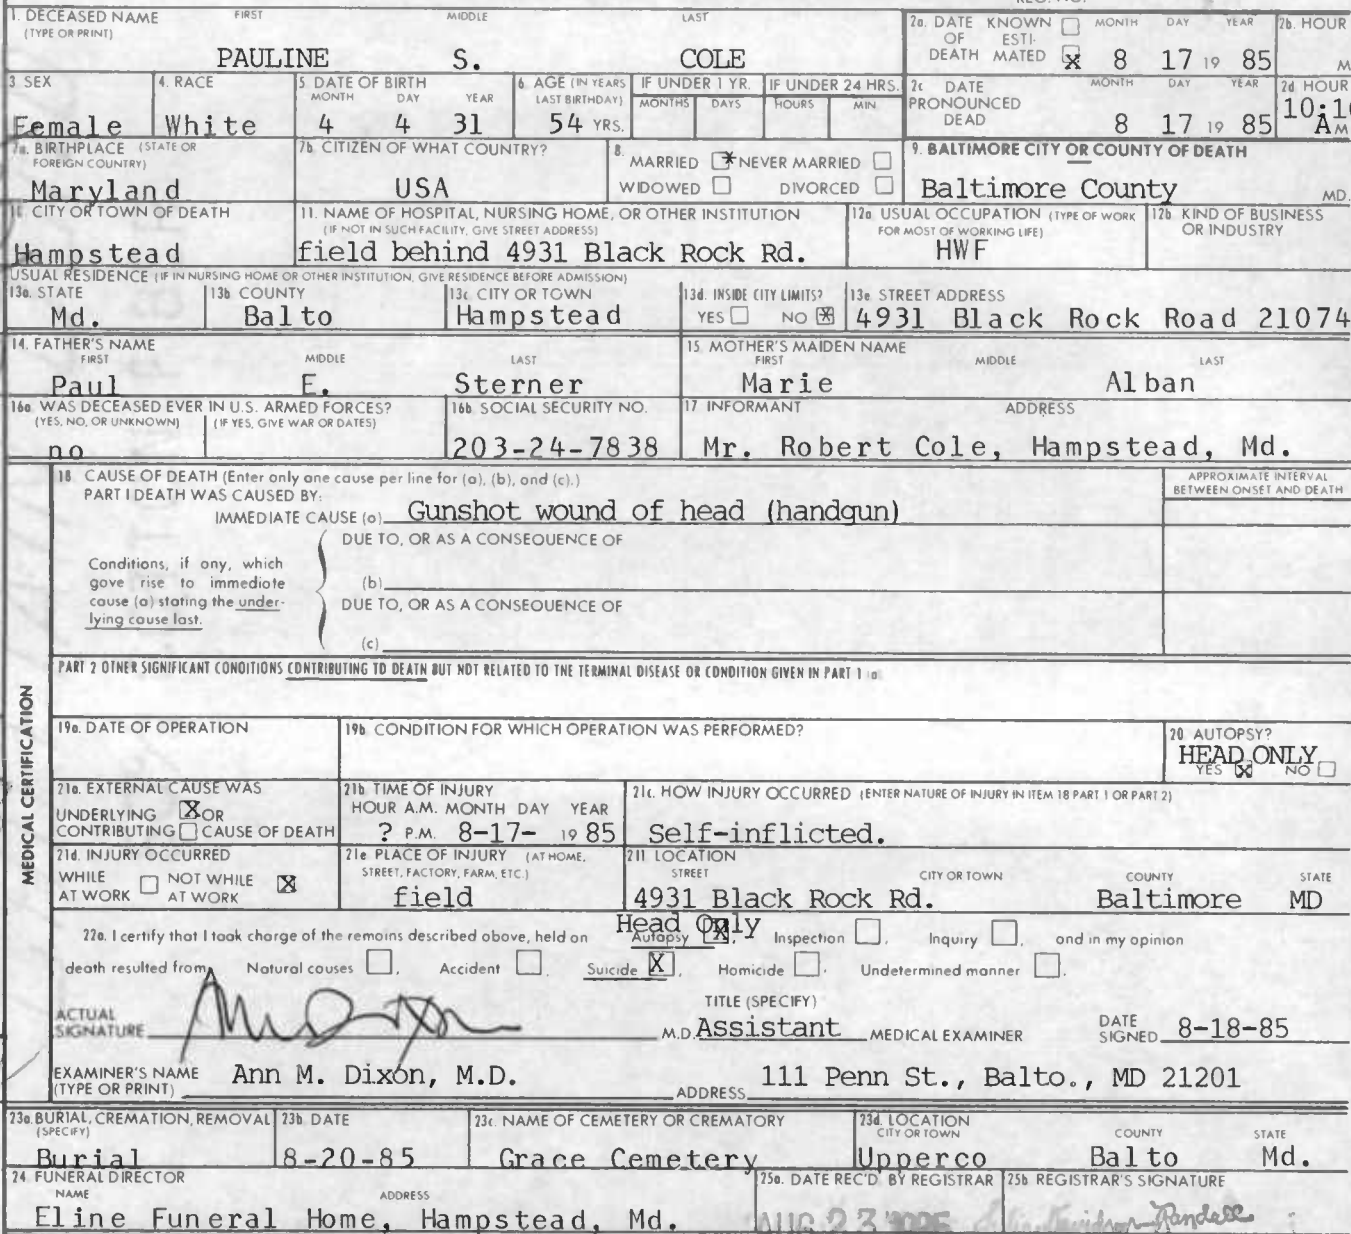 1. DECEASED NAME FIRST MIDDLE LAST
(TYPE OR PRINT)
PAULINE S. COLE
2a. DATE OF DEATH KNOWN ESTIMATED MONTH DAY YEAR
X 8 17 19 85
2b. HOUR
M
3 SEX
Female
4. RACE
White
5 DATE OF BIRTH
MONTH DAY YEAR
4 4 31
6 AGE (IN YEARS LAST BIRTHDAY)
54 YRS.
IF UNDER 1 YR.
MONTHS DAYS
IF UNDER 24 HRS.
HOURS MIN
2c DATE PRONOUNCED DEAD
MONTH DAY YEAR
8 17 19 85
2d HOUR
AM
7a. BIRTHPLACE (STATE OR FOREIGN COUNTRY)
Maryland
7b CITIZEN OF WHAT COUNTRY?
USA
8.
MARRIED * NEVER MARRIED
WIDOWED DIVORCED
9. BALTIMORE CITY OR COUNTY OF DEATH
Baltimore County MD.
CITY OR TOWN OF DEATH
Hampstead
11. NAME OF HOSPITAL, NURSING HOME, OR OTHER INSTITUTION
(IF NOT IN SUCH FACILITY, GIVE STREET ADDRESS)
field behind 4931 Black Rock Rd.
12a USUAL OCCUPATION (TYPE OF WORK FOR MOST OF WORKING LIFE)
HWF
12b. KIND OF BUSINESS OR INDUSTRY
USUAL RESIDENCE (IF IN NURSING HOME OR OTHER INSTITUTION, GIVE RESIDENCE BEFORE ADMISSION)
13a. STATE
Md.
13b COUNTY
Balto
13c CITY OR TOWN
Hampstead
13d. INSIDE CITY LIMITS?
YES NO X
13e STREET ADDRESS
4931 Black Rock Road 21074
14. FATHER'S NAME
FIRST MIDDLE LAST
Paul E. Sterner
15. MOTHER'S MAIDEN NAME
FIRST MIDDLE LAST
Marie Alban
16a WAS DECEASED EVER IN U.S. ARMED FORCES?
(YES, NO, OR UNKNOWN) (IF YES, GIVE WAR OR DATES)
no
16b SOCIAL SECURITY NO.
203-24-7838
17 INFORMANT ADDRESS
Mr. Robert Cole, Hampstead, Md.
MEDICAL CERTIFICATION
18 CAUSE OF DEATH (Enter only one cause per line for (a), (b), and (c).)
PART I DEATH WAS CAUSED BY:
IMMEDIATE CAUSE (a) Gunshot wound of head (handgun)
APPROXIMATE INTERVAL
BETWEEN ONSET AND DEATH
DUE TO, OR AS A CONSEQUENCE OF
Conditions, if any, which
gave rise to immediate
cause (a) stating the under-
lying cause last.
(b)
DUE TO, OR AS A CONSEQUENCE OF
(c)
PART 2 OTHER SIGNIFICANT CONDITIONS CONTRIBUTING TO DEATH BUT NOT RELATED TO THE TERMINAL DISEASE OR CONDITION GIVEN IN PART 1 a
19a. DATE OF OPERATION
19b CONDITION FOR WHICH OPERATION WAS PERFORMED?
20 AUTOPSY?
HEAD ONLY
YES X NO
21a. EXTERNAL CAUSE WAS
UNDERLYING X OR
CONTRIBUTING CAUSE OF DEATH
21b TIME OF INJURY
HOUR A.M. MONTH DAY YEAR
? P.M. 8-17- 19 85
21c. HOW INJURY OCCURRED (ENTER NATURE OF INJURY IN ITEM 18 PART 1 OR PART 2)
Self-inflicted.
21d. INJURY OCCURRED
WHILE AT WORK NOT WHILE AT WORK X
21e PLACE OF INJURY (AT HOME, STREET, FACTORY, FARM, ETC.)
field
21f LOCATION
STREET CITY OR TOWN COUNTY STATE
4931 Black Rock Rd. Baltimore MD
Head Only
22a. I certify that I took charge of the remains described above, held on Autopsy X, Inspection , Inquiry , and in my opinion
death resulted from Natural causes , Accident , Suicide X, Homicide , Undetermined manner .
ACTUAL SIGNATURE
TITLE (SPECIFY)
M.D. Assistant MEDICAL EXAMINER
DATE SIGNED 8-18-85
EXAMINER'S NAME (TYPE OR PRINT) Ann M. Dixon, M.D.
ADDRESS 111 Penn St., Balto., MD 21201
23a. BURIAL, CREMATION, REMOVAL (SPECIFY)
Burial
23b DATE
8-20-85
23c. NAME OF CEMETERY OR CREMATORY
Grace Cemetery
23d. LOCATION
CITY OR TOWN COUNTY STATE
Upperco Balto Md.
24 FUNERAL DIRECTOR
NAME ADDRESS
Eline Funeral Home, Hampstead, Md.
25a. DATE REC'D BY REGISTRAR
AUG 23
25b REGISTRAR'S SIGNATURE
Randall